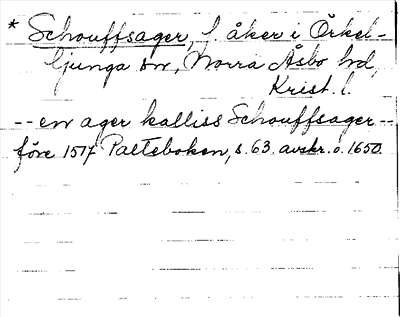 * Schouffsager, f. åker i Örkel-
ljunga sn, Norra Åsbo hd,
Krist. l.
-- en ager kalliss Schouffsager --
före 1517 Palteboken, s. 63. avskr. o. 1650.